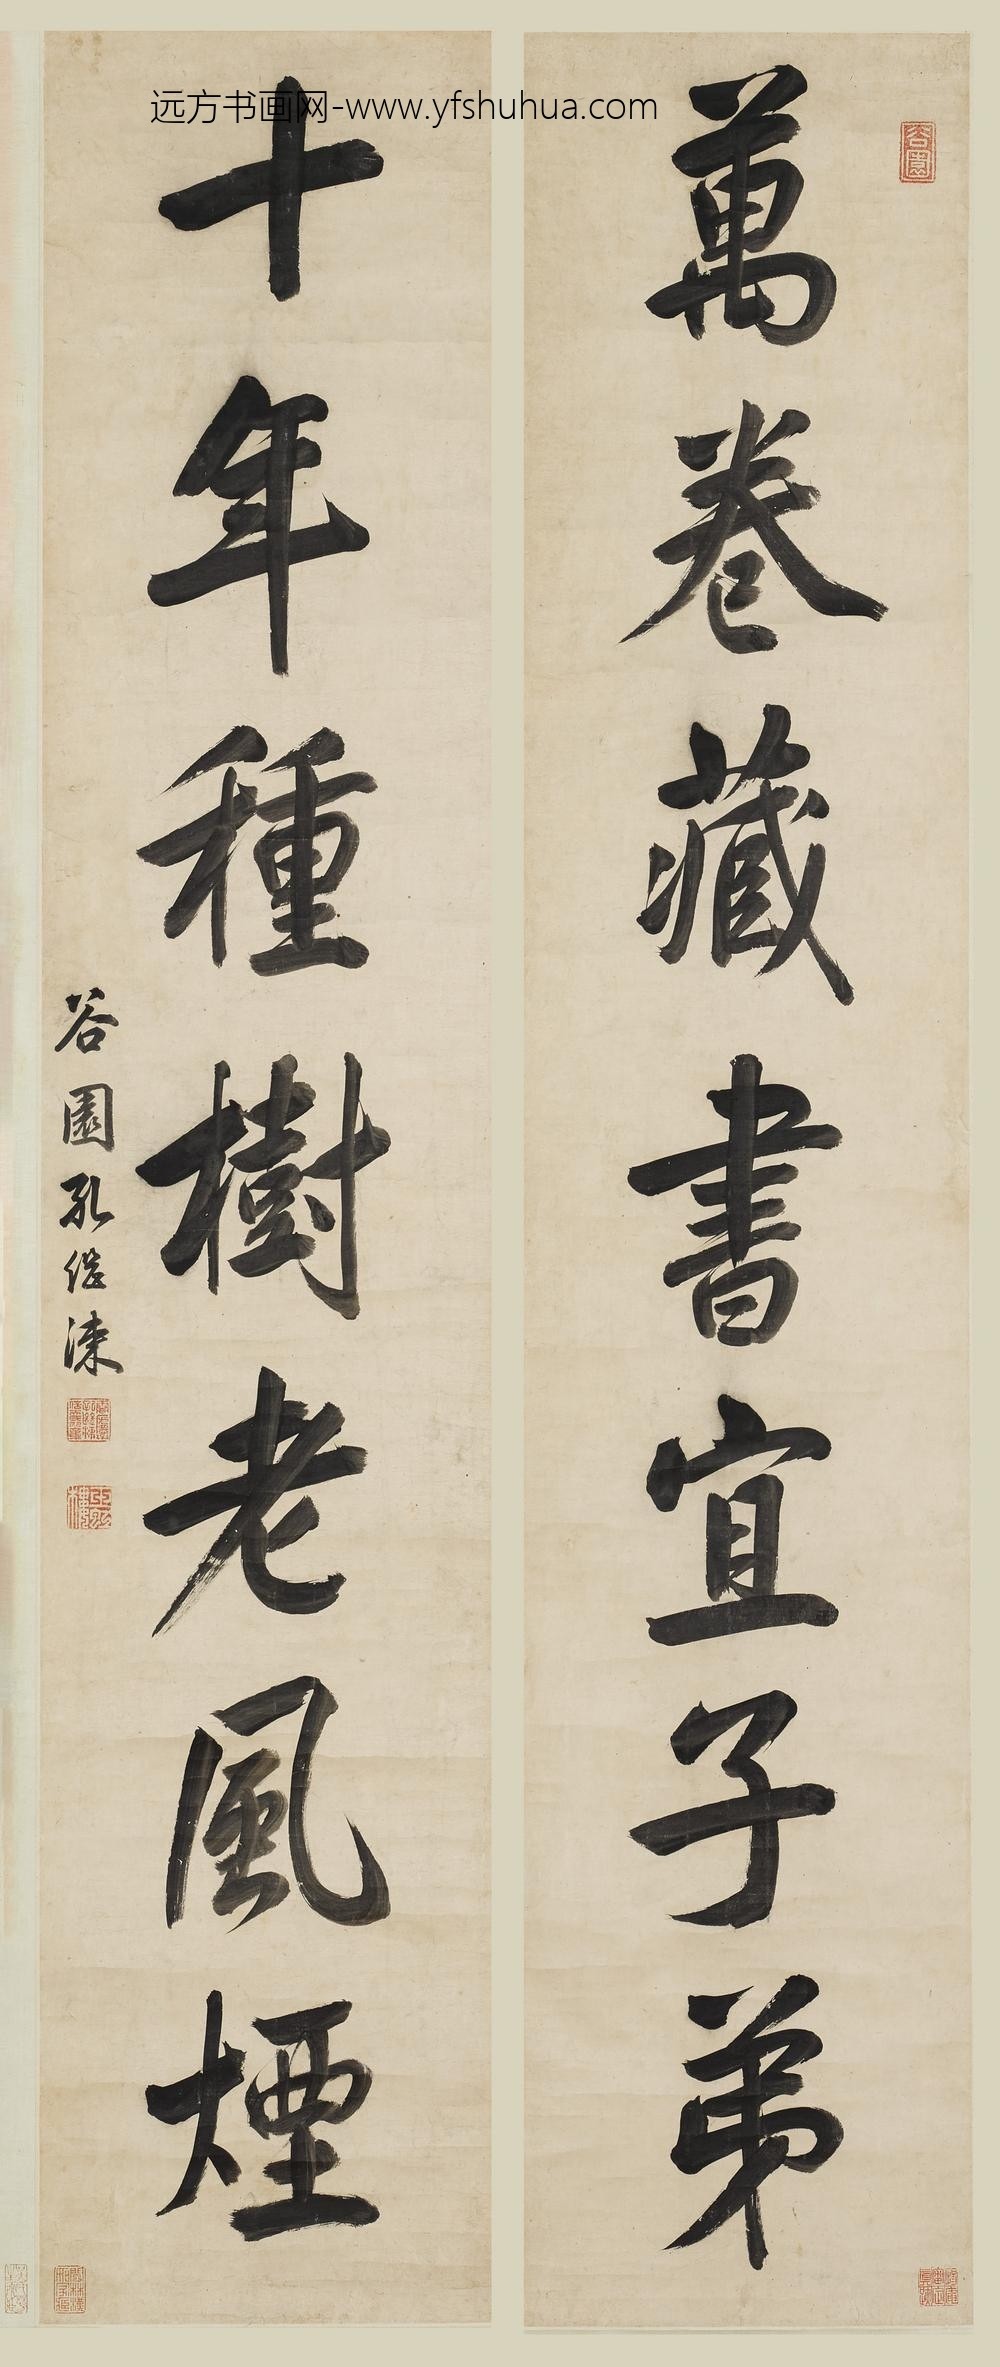 远方书画网-www.yfshuhua.com
萬卷藏書宜子弟
十年種樹老風煙
谷園孔继涑
谷園